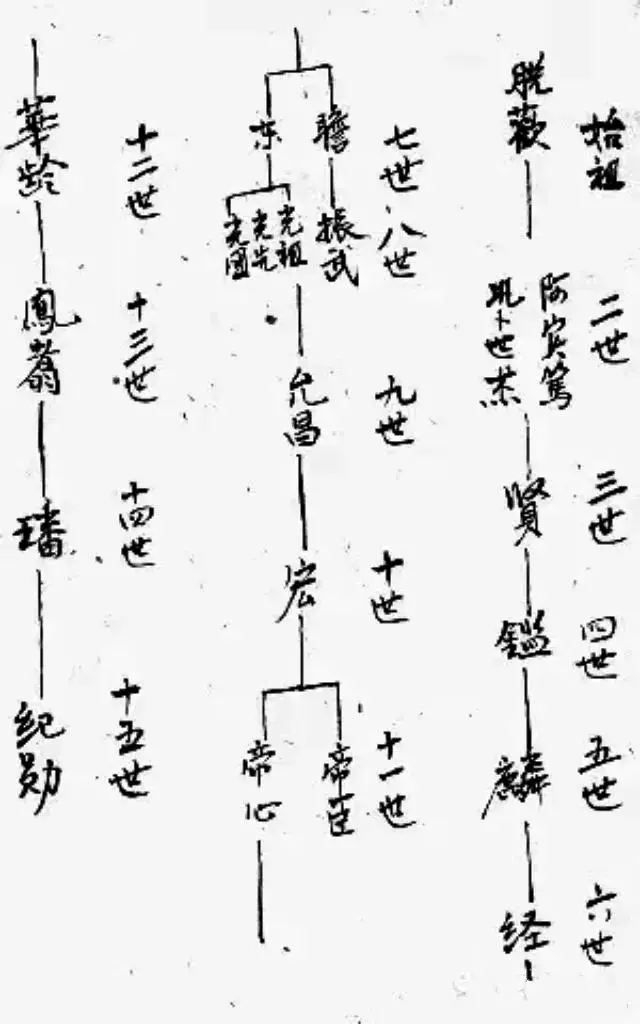 始祖
脱歡
二世
阿賓篤
卜世杰
三世
賢
四世
鑑
五世
麟
六世
経
七世
瞻
东
八世
振武
光祖
光先
光國
九世
允昌
十世
宏
十一世
帝臣
帝心
十二世
華龄
十三世
鳳翥
十四世
璠
十五世
纪勋